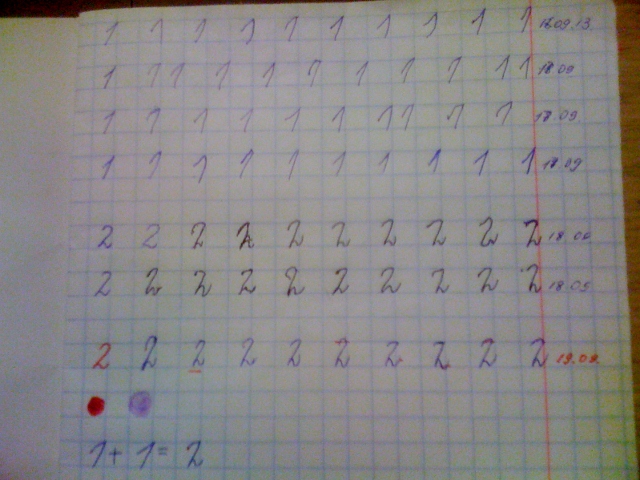 1 1 1 1 1 1 1 1 1 1 18.09.13
1 1 1 1 1 1 1 1 1 1 1 18.09
1 1 1 1 1 1 1 1 1 1 18.09
1 1 1 1 1 1 1 1 1 1 18.09
2 2 2 2 2 2 2 2 2 2 18.09
2 2 2 2 2 2 2 2 2 2 18.09
2 2 2 2 2 2 2 2 2 2 19.09
1 + 1 = 2